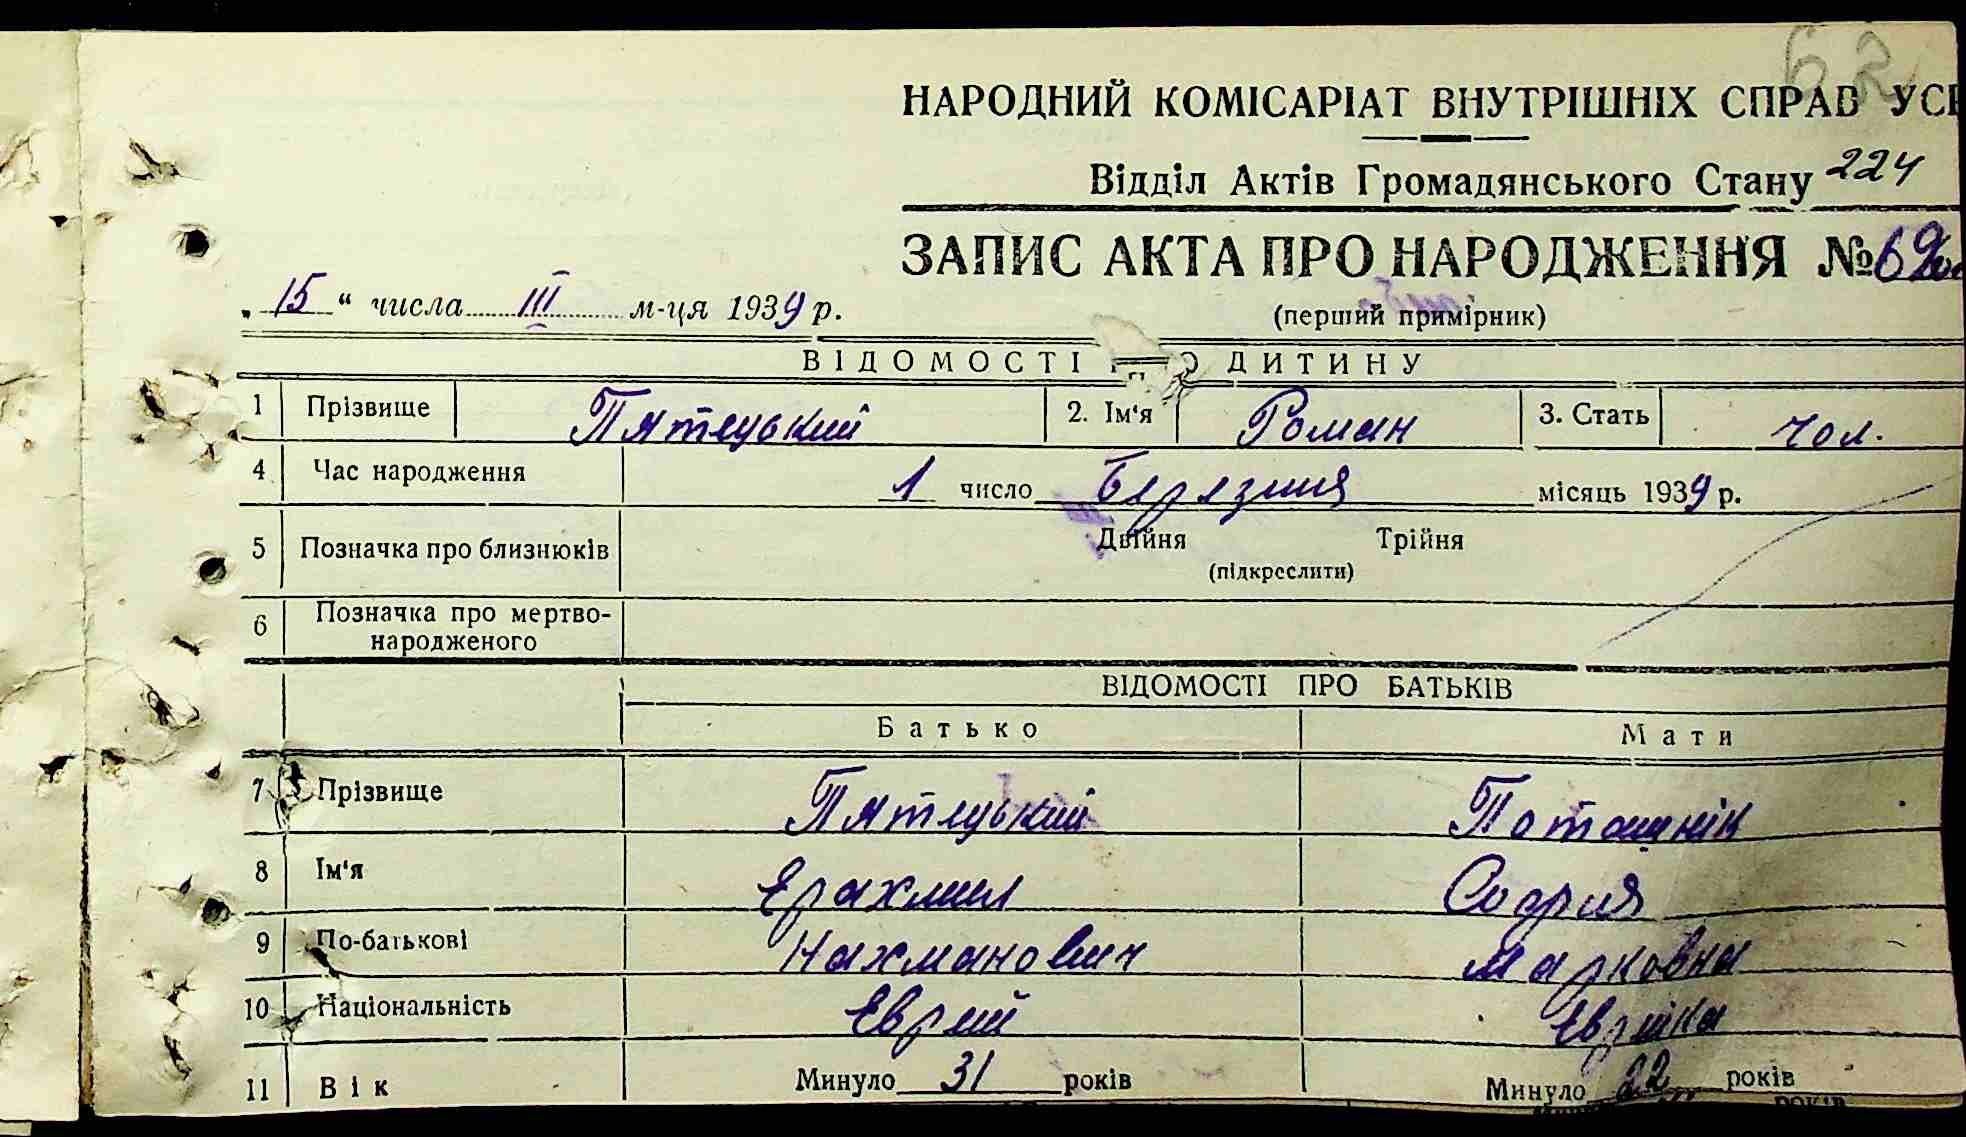 62
НАРОДНИЙ КОМІСАРІАТ ВНУТРІШНІХ СПРАВ
Відділ Актів Громадянського Стану 224
ЗАПИС АКТА ПРО НАРОДЖЕННЯ №
„15“ числа III м-ця 1939 р.
(перший примірник)
ВІДОМОСТІ ДИТИНУ
1 Прізвище Пятецький 2. Ім'я Роман 3. Стать чол.
4 Час народження 1 число Березня місяць 1939 р.
5 Позначка про близнюків Двійня Трійня
(підкреслити)
6 Позначка про мертво-
народженого
ВІДОМОСТІ ПРО БАТЬКІВ
Батько Мати
7 Прізвище Пятецький Поташнік
8 Ім'я Ерахмил София
9 По-батькові Нахманович Марковна
10 Національність Еврей Еврійка
11 Вік Минуло 31 років Минуло 22 років